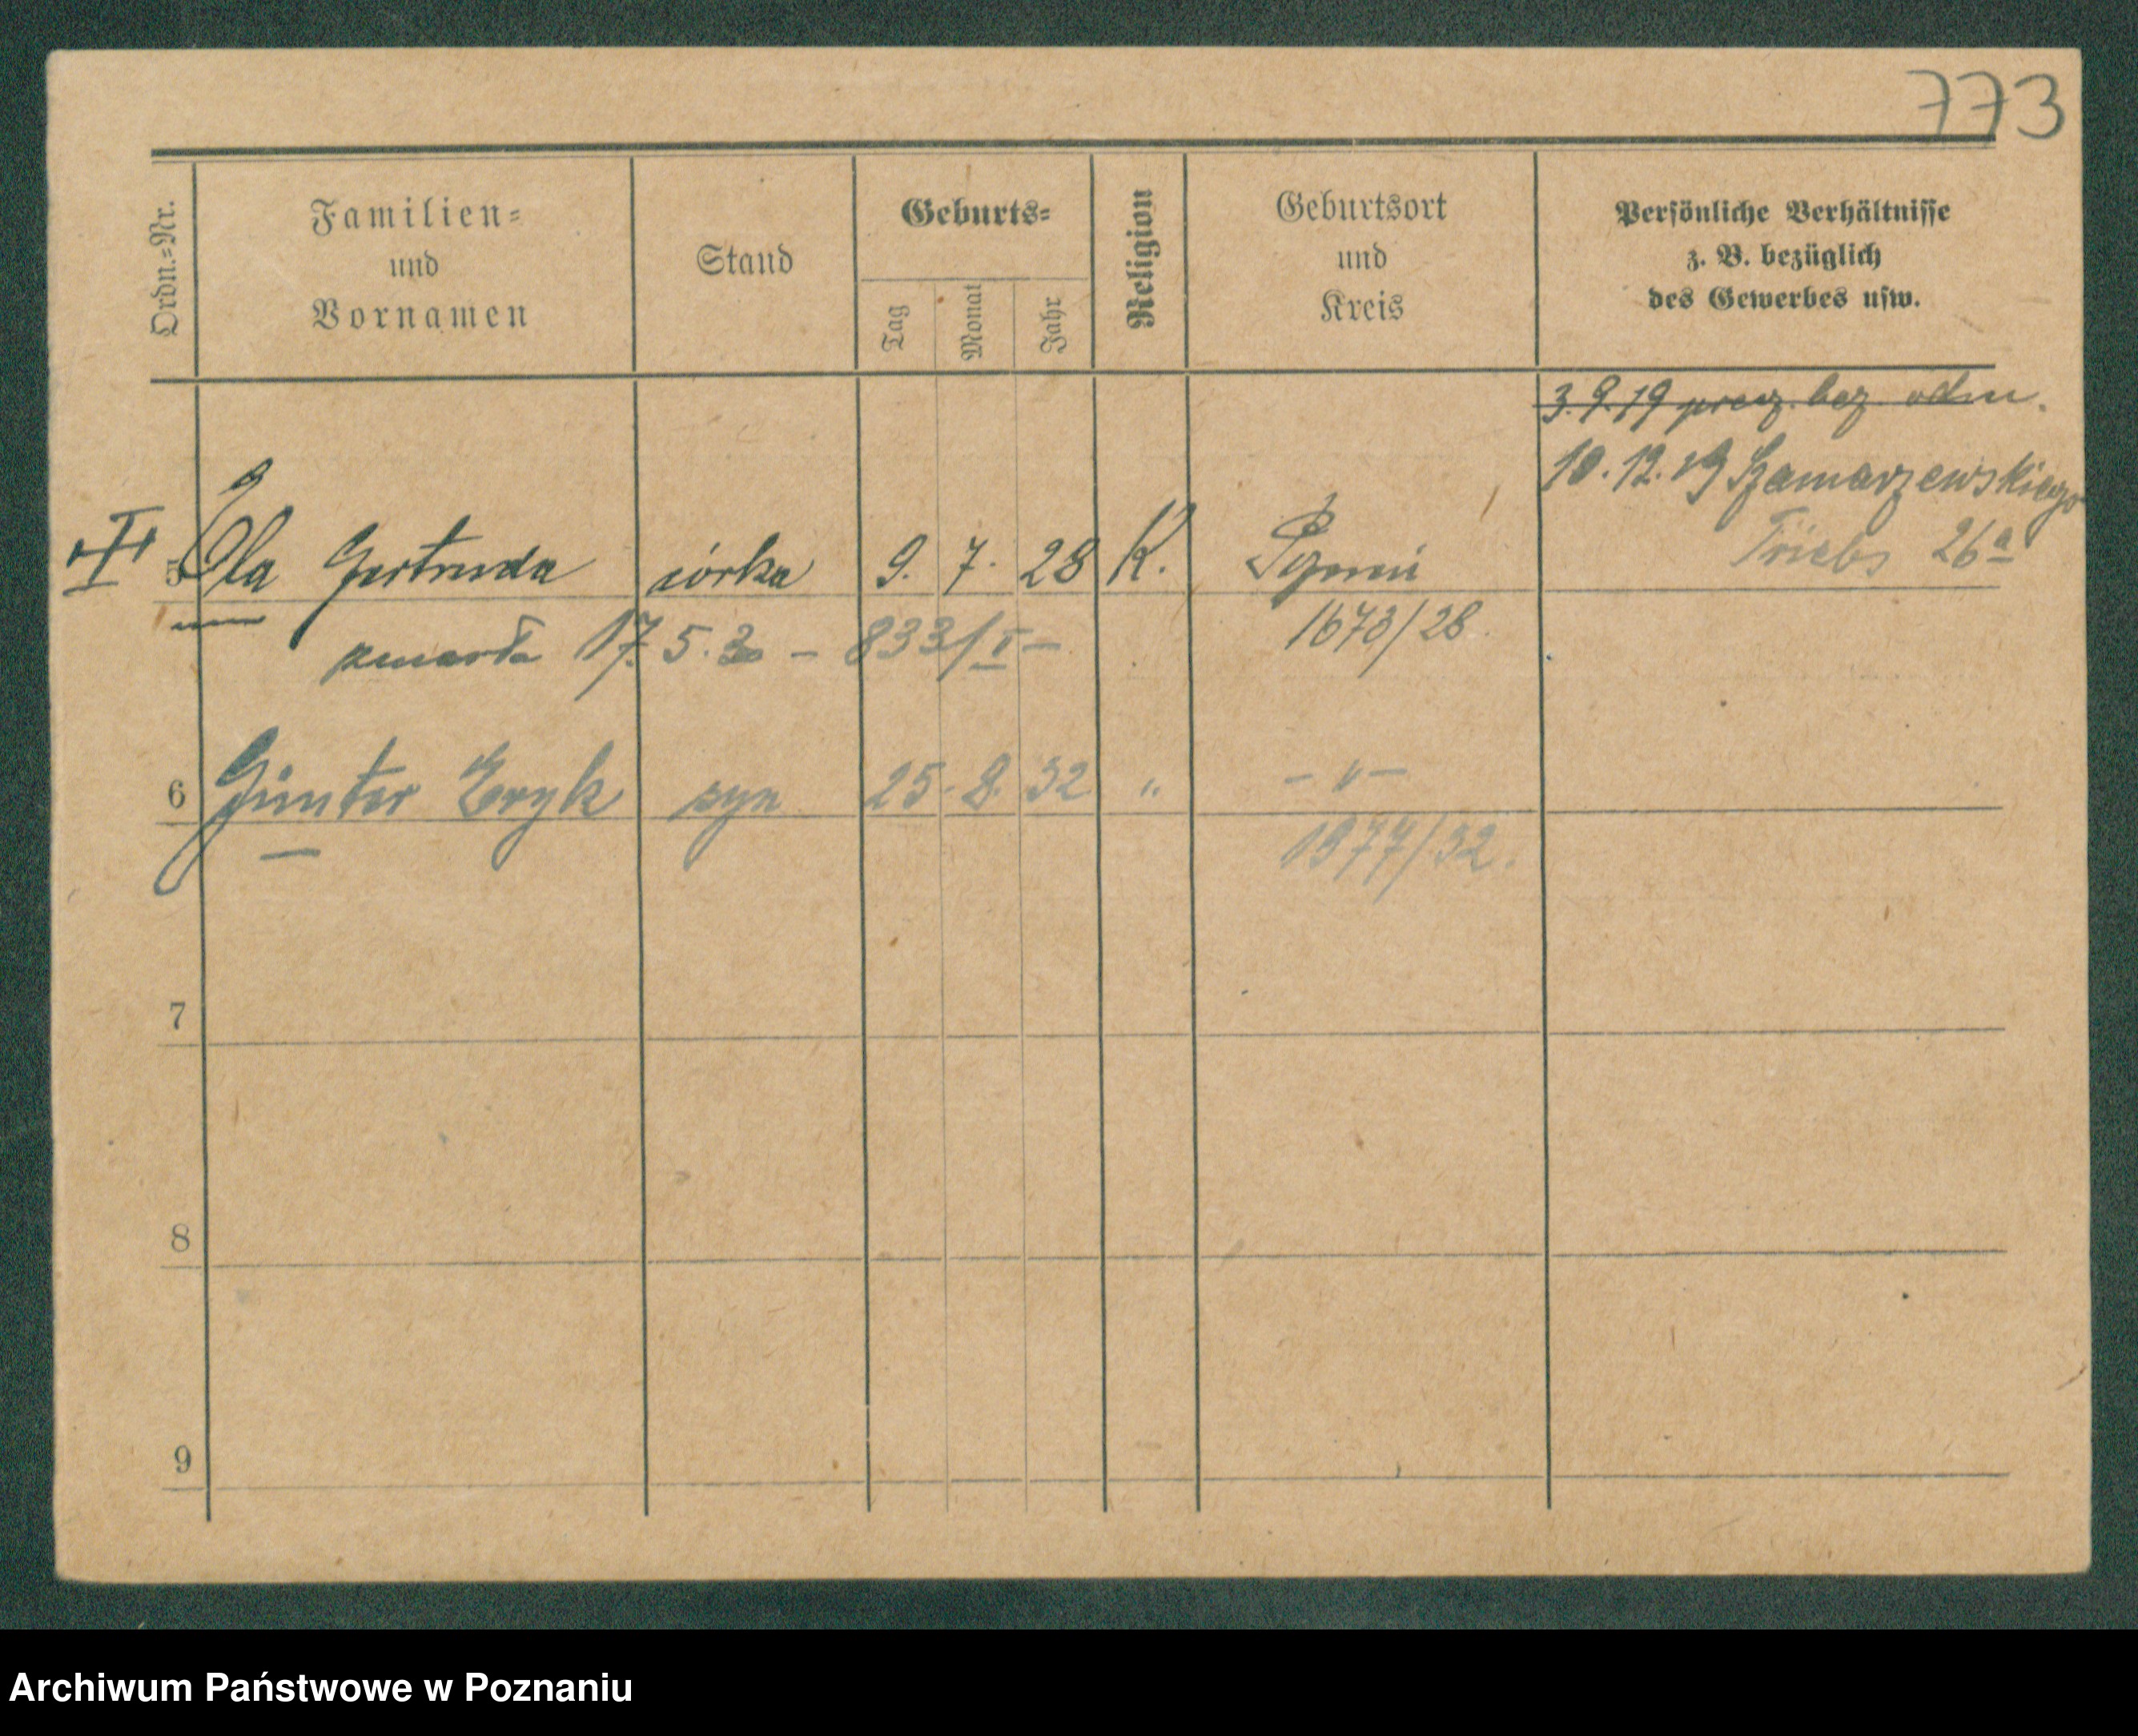 773
Ordn.=Nr.
Familien=
und
Vornamen
Stand
Geburts=
Tag
Monat
Jahr
Religion
Geburtsort
und
Kreis
Persönliche Verhältnisse
z. B. bezüglich
des Gewerbes usw.
3.9.19 bez odm.
10.12.19 Szamarzewskiego
26a
5 Ela Gertruda córka 9. 7. 28 K.
1673/28.
zmarła 17.5.30 – 833/I –
6 Günter Eryk syn 25. 8. 32 " – " –
1977/32.
7
8
9
Archiwum Państwowe w Poznaniu